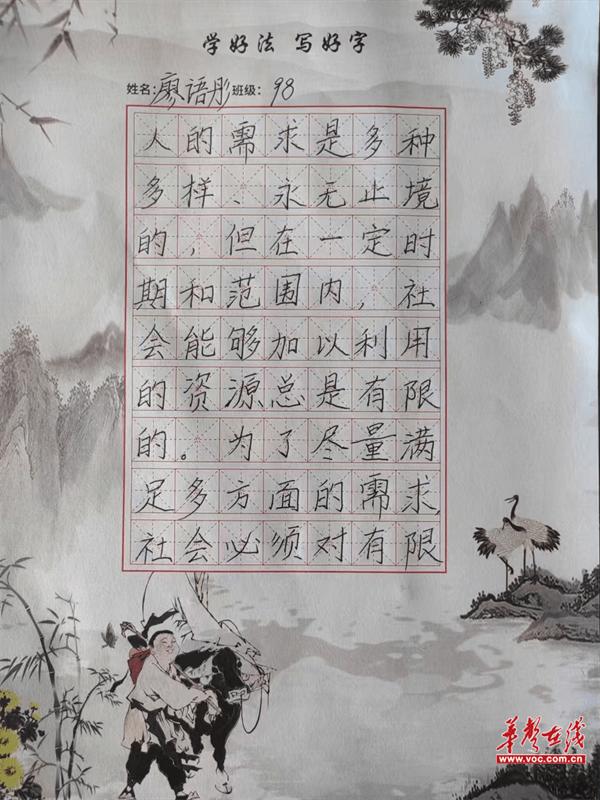 学好法 写好字
姓名：廖语彤 班级：98
人的需求是多种
多样、永无止境
的，但在一定时
期和范围内，社
会能够加以利用
的资源总是有限
的。为了尽量满
足多方面的需求，
社会必须对有限
华声在线
www.voc.com.cn